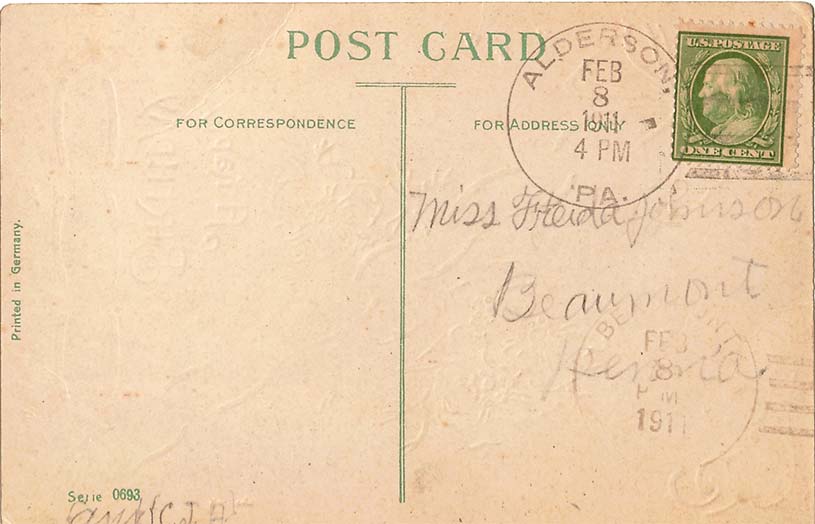 POST CARD
FOR CORRESPONDENCE
FOR ADDRESS ONLY
U.S. POSTAGE
ONE CENT
ALDERSON,
FEB
8
1911
4 PM
PA.
Miss Freida Johnson
Beaumont
Penna.
BEAUMONT
FEB
8
P M
1911
Printed in Germany.
Serie 0693